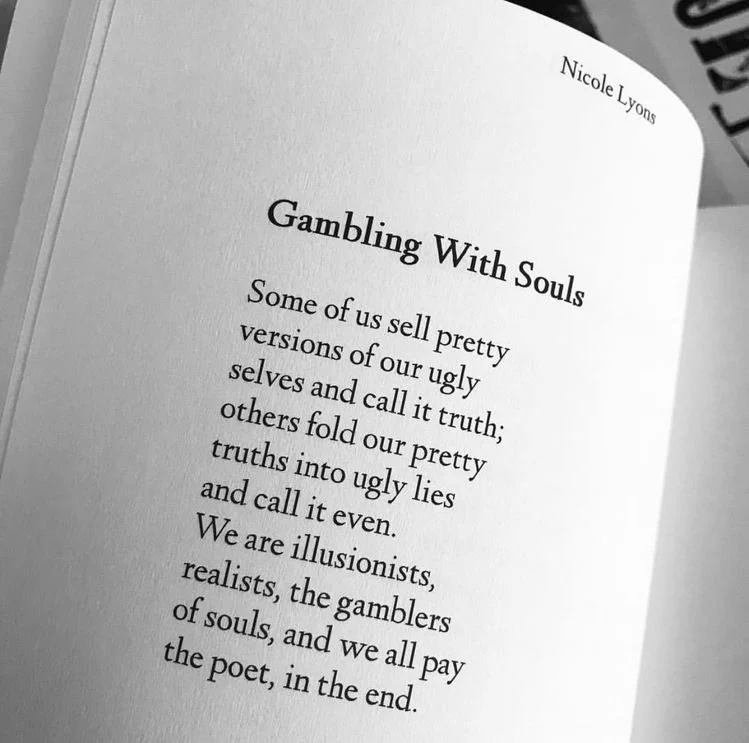 Nicole Lyons
Gambling With Souls
Some of us sell pretty
versions of our ugly
selves and call it truth;
others fold our pretty
truths into ugly lies
and call it even.
We are illusionists,
realists, the gamblers
of souls, and we all pay
the poet, in the end.